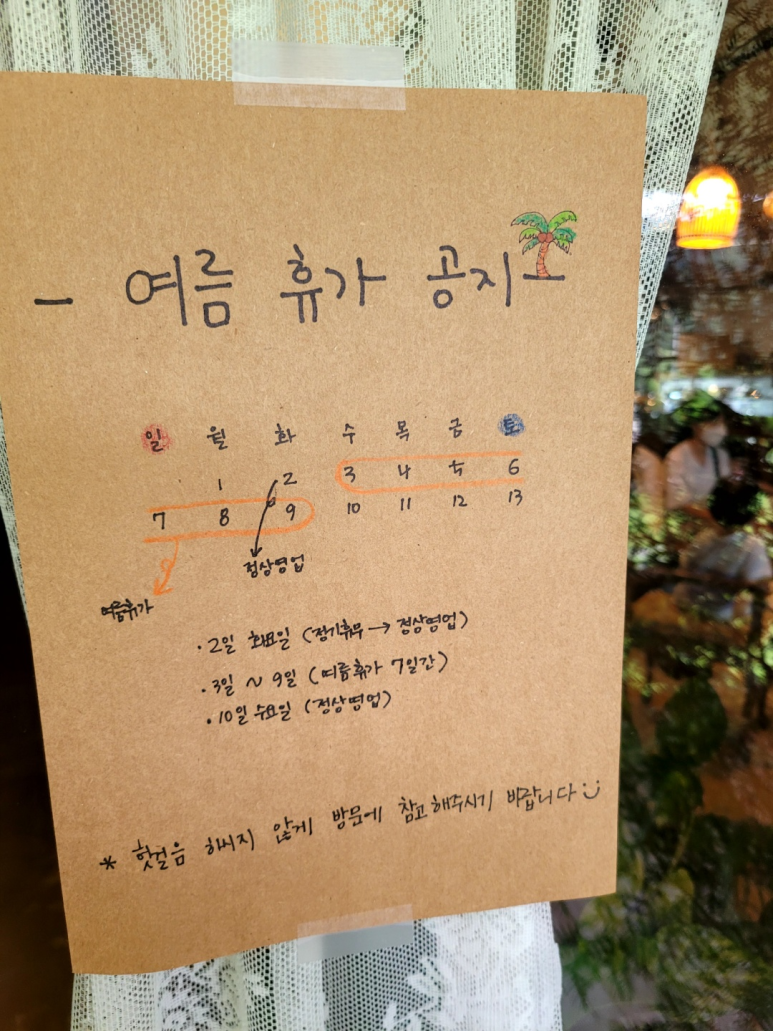 - 여름 휴가 공지 -
일 월 화 수 목 금 토
1 2 3 4 5 6
7 8 9 10 11 12 13
정상영업
여름휴가
· 2일 화요일 (정기휴무 → 정상영업)
· 3일 ~ 9일 (여름휴가 7일간)
· 10일 수요일 (정상영업)
* 헛걸음 하시지 않게 방문에 참고해주시기 바랍니다 :)